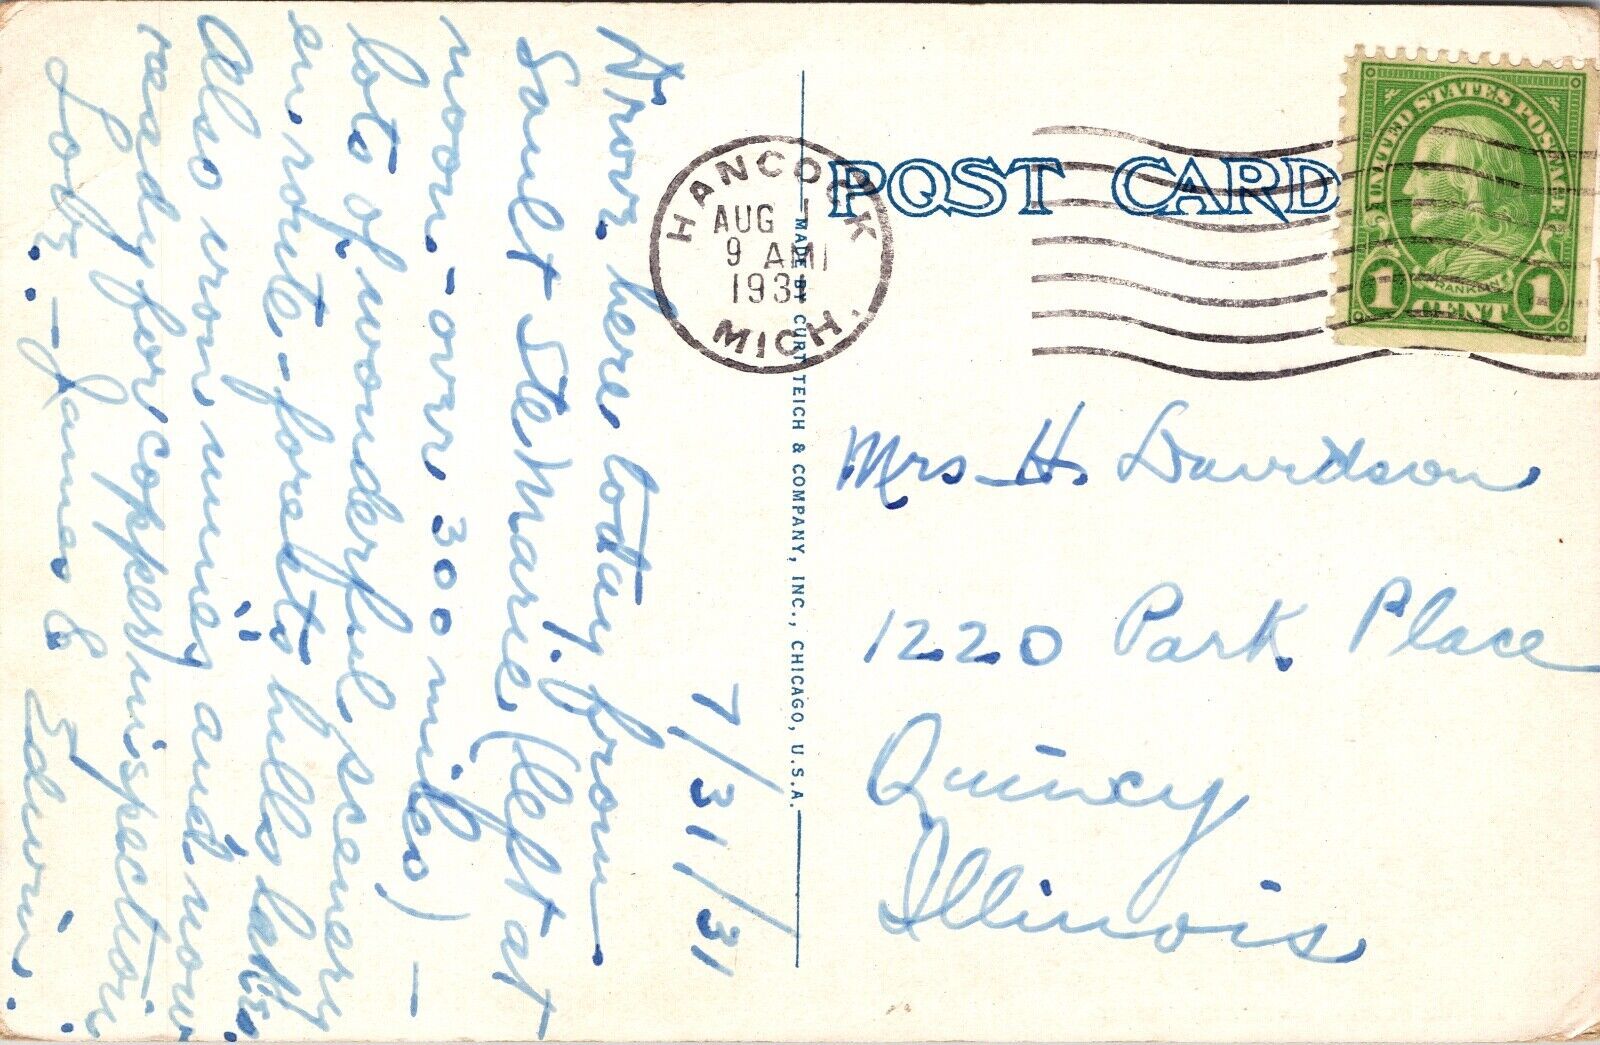 7/31/31
Drove here today from
Sault Ste Marie (left at
noon - over 300 miles) -
lots of wonderful scenery
en route - forests hills lakes.
Also iron mines and now
ready for copper inspection
Love - James & Edwin.
HANCOCK
AUG 1
9 AM
1931
MICH.
POST CARD
UNITED STATES POSTAGE
FRANKLIN
1 CENT 1
MADE BY CURT TEICH & COMPANY, INC., CHICAGO, U.S.A.
Mrs H. Davidson
1220 Park Place
Quincy
Illinois